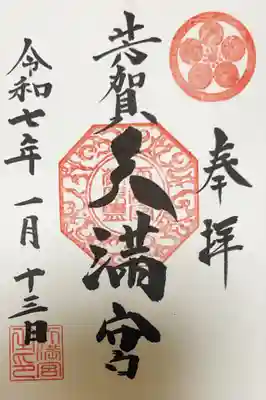 奉拝
芳賀天満宮
令和七年一月十三日